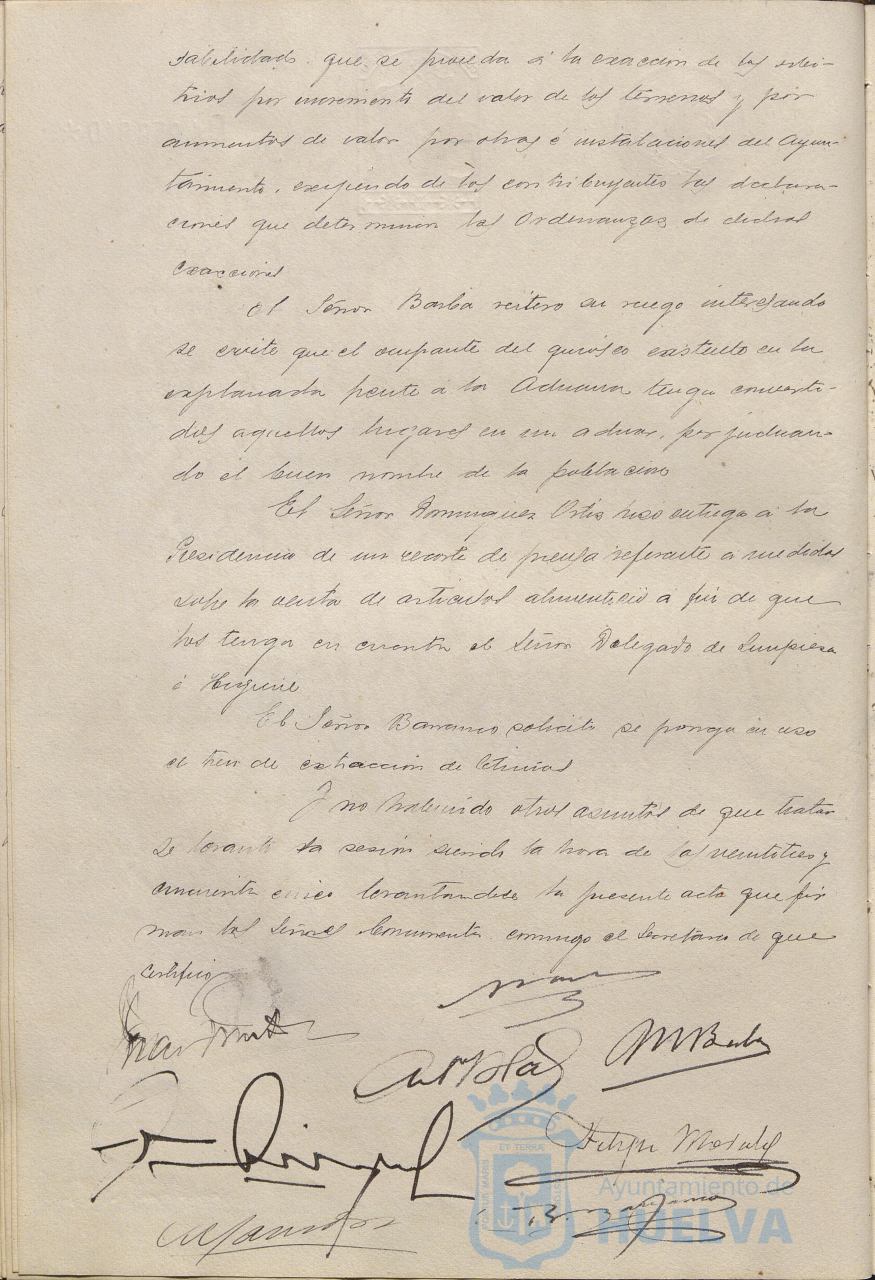 sabilidad que se proceda á la exacción de los arbi-
trios por incremento del valor de los terrenos y por
aumentos de valor por obras é instalaciones del Ayun-
tamiento, exigiendo de los contribuyentes las declara-
ciones que determinan las Ordenanzas de dichas
exacciones
El Señor Barba reitero su ruego interesando
se evite que el ocupante del quiosco existente en la
explanada frente a la Aduana tenga converti-
dos aquellos lugares en un aduar, perjudican-
do el buen nombre de la población
El Señor Dominguez Ortiz hizo entrega á la
Presidencia de un recorte de prensa referente a medidas
sobre la venta de articulos alimenticio a fin de que
los tenga en cuenta el Señor Delegado de Limpieza
é Higiene
El Señor Barranco solicita se ponga en uso
el tren de extracción de letrinas
Y no habiendo otros asuntos de que tratar
se levantó la sesión siendo la hora de las veintitres y
cincuenta cinco levantandose la presente acta que fir
man los Señores Concurrentes conmigo el Secretario de que
certifico
M Barba
Felipe Morales
PORTUS MARIS ET TERRAE CUSTODIA
Ayuntamiento de
HUELVA